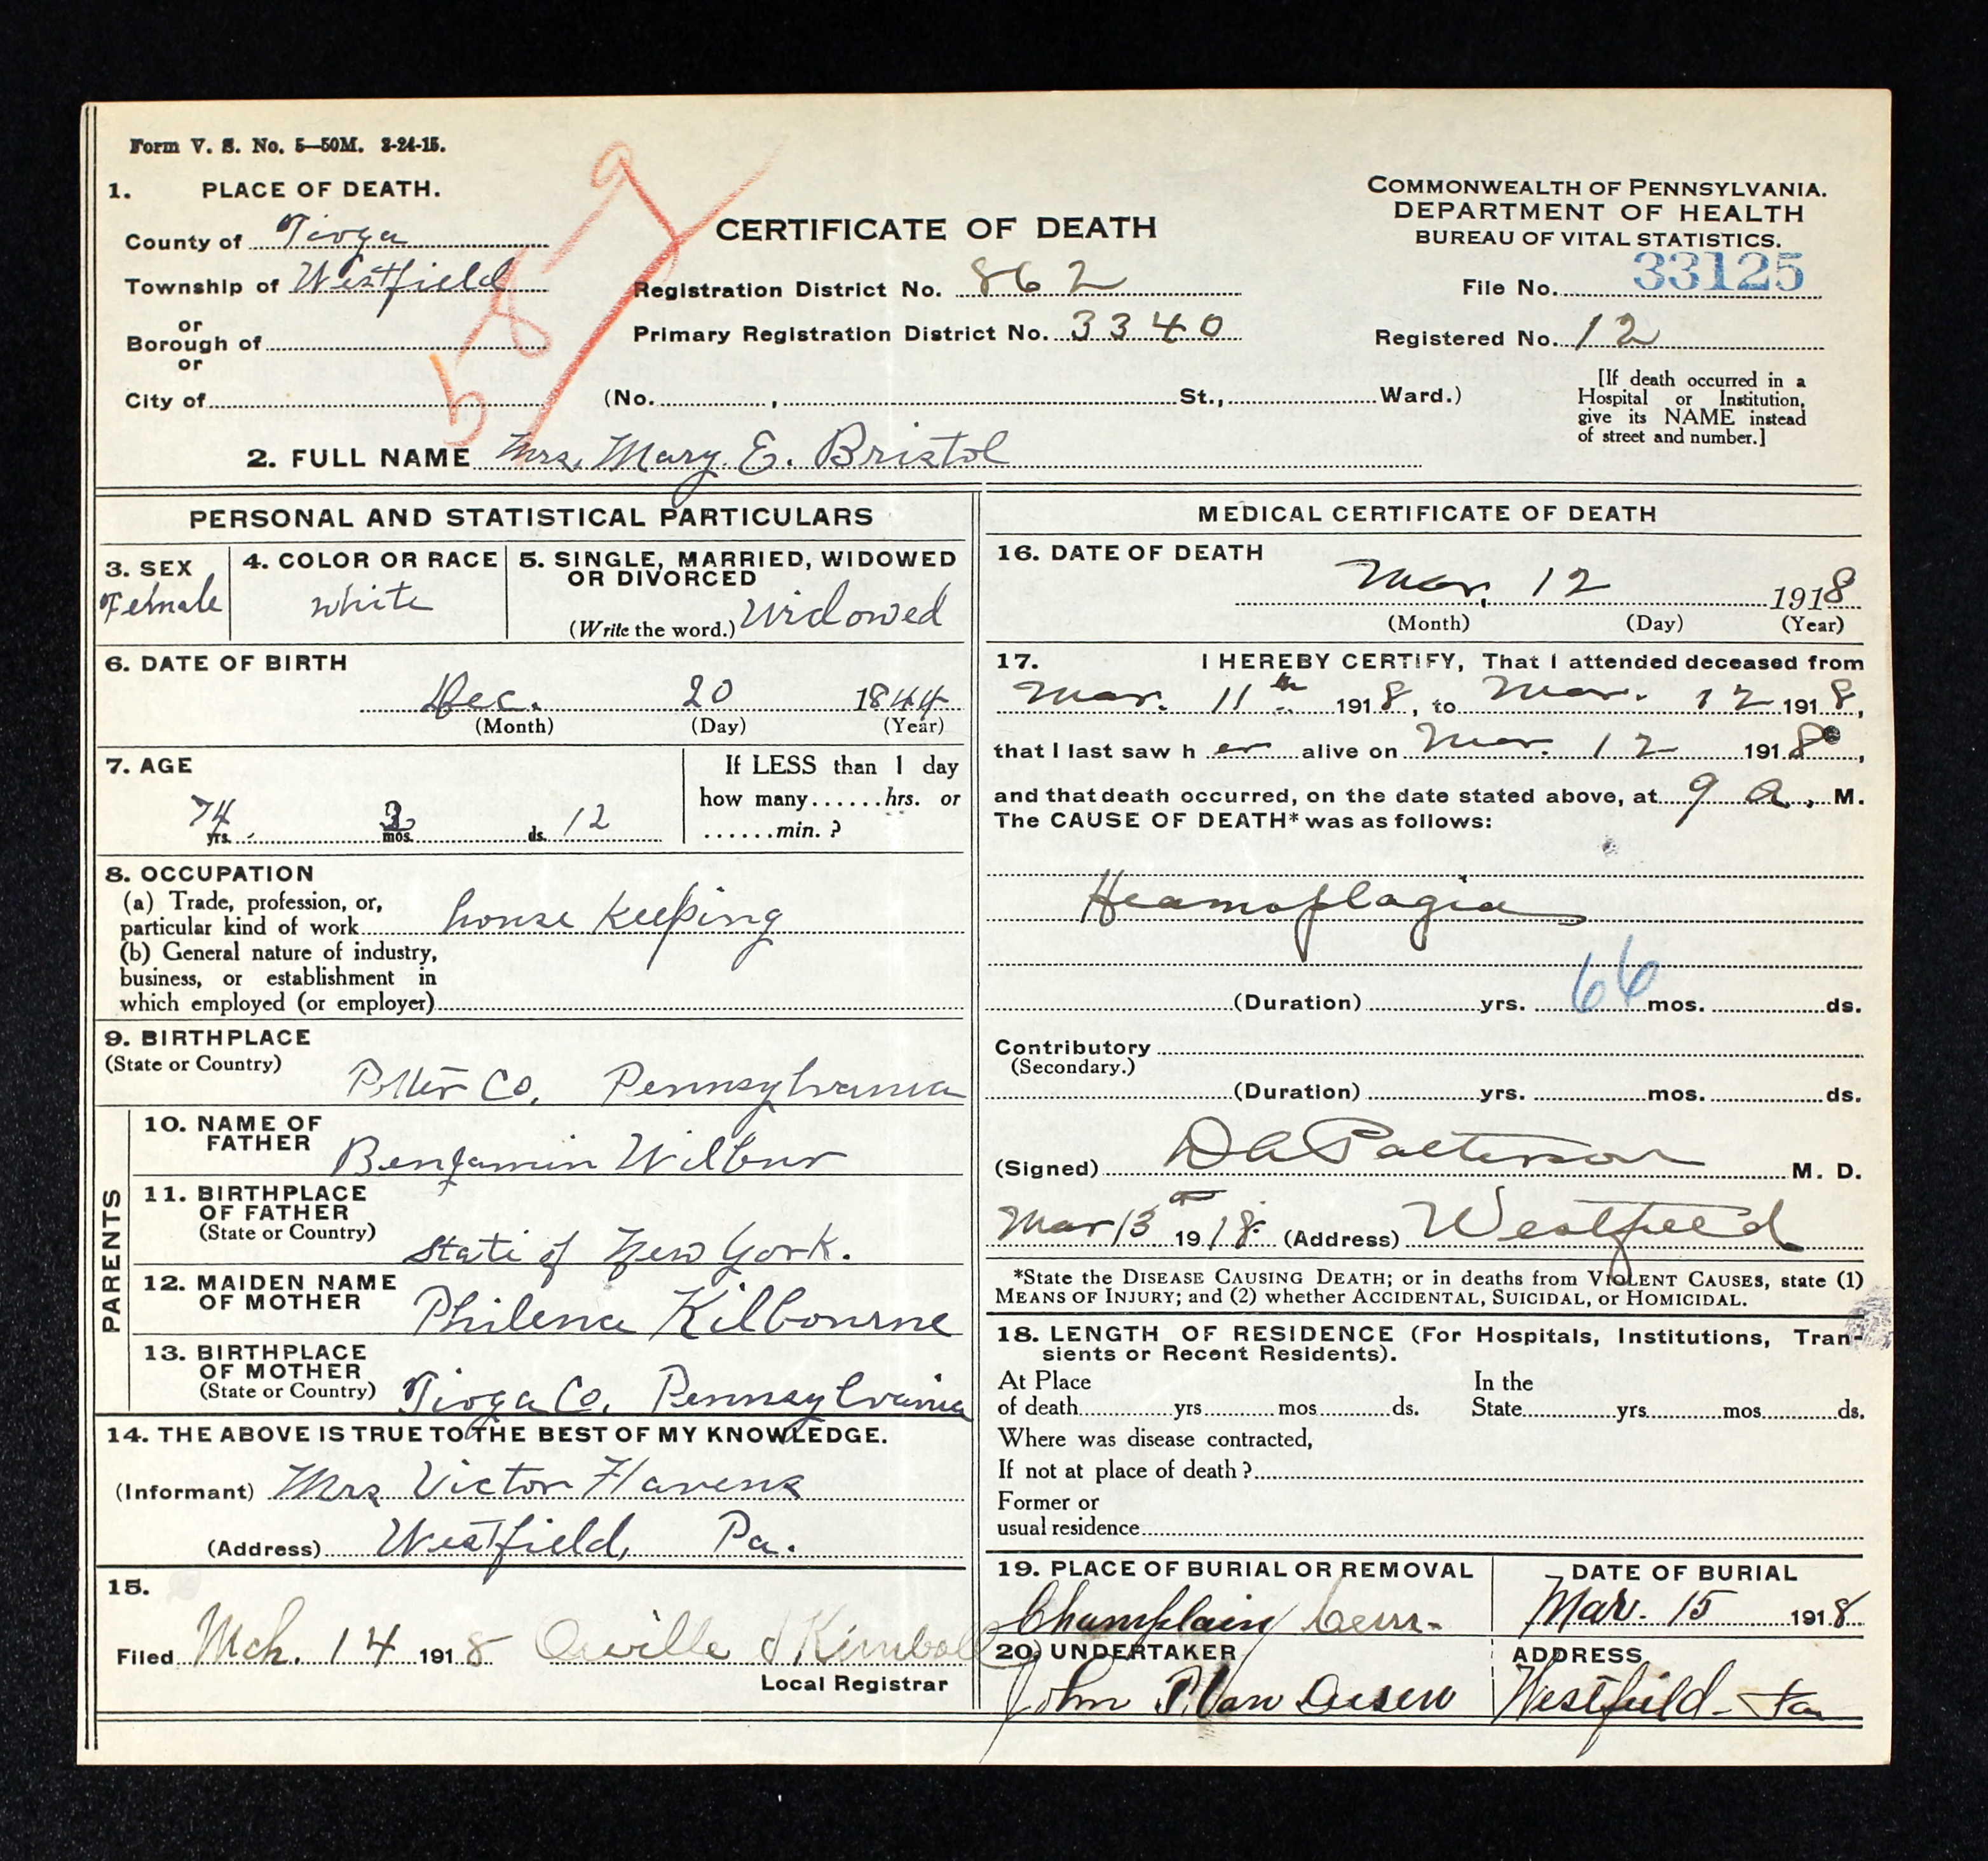 Form V. S. No. 5—50M. 3-24-15.
1. PLACE OF DEATH.
County of Tioga
Township of Westfield
or
Borough of
or
City of
CERTIFICATE OF DEATH
Registration District No. 862
Primary Registration District No. 3340
(No. , St., Ward.)
COMMONWEALTH OF PENNSYLVANIA.
DEPARTMENT OF HEALTH
BUREAU OF VITAL STATISTICS.
File No. 33125
Registered No. 12
[If death occurred in a
Hospital or Institution,
give its NAME instead
of street and number.]
2. FULL NAME Mrs. Mary E. Bristol
PERSONAL AND STATISTICAL PARTICULARS
3. SEX
Female
4. COLOR OR RACE
white
5. SINGLE, MARRIED, WIDOWED
OR DIVORCED
(Write the word.) Widowed
6. DATE OF BIRTH
Dec. 20 1844
(Month) (Day) (Year)
7. AGE
74 yrs. 3 mos. ds. 12
If LESS than 1 day
how many......hrs. or
......min. ?
8. OCCUPATION
(a) Trade, profession, or,
particular kind of work house keeping
(b) General nature of industry,
business, or establishment in
which employed (or employer)
9. BIRTHPLACE
(State or Country)
Potter Co. Pennsylvania
PARENTS
10. NAME OF
FATHER
Benjamin Wilbur
11. BIRTHPLACE
OF FATHER
(State or Country)
State of New York.
12. MAIDEN NAME
OF MOTHER
Philena Kilbourne
13. BIRTHPLACE
OF MOTHER
(State or Country)
Tioga Co. Pennsylvania
14. THE ABOVE IS TRUE TO THE BEST OF MY KNOWLEDGE.
(Informant) Mrs Victor Havens
(Address) Westfield, Pa.
15.
Filed Mch. 14 1918 Orville S Kimball
Local Registrar
MEDICAL CERTIFICATE OF DEATH
16. DATE OF DEATH
Mar. 12 1918
(Month) (Day) (Year)
17. I HEREBY CERTIFY, That I attended deceased from
Mar. 11th 1918, to Mar. 12 1918,
that I last saw h er alive on Mar. 12 1918,
and that death occurred, on the date stated above, at 9 a. M.
The CAUSE OF DEATH* was as follows:
Heamoplagia
66
(Duration) yrs. mos. ds.
Contributory
(Secondary.)
(Duration) yrs. mos. ds.
(Signed) Patterson M. D.
Mar 13 1918. (Address) Westfield
*State the DISEASE CAUSING DEATH; or in deaths from VIOLENT CAUSES, state (1)
MEANS OF INJURY; and (2) whether ACCIDENTAL, SUICIDAL, or HOMICIDAL.
18. LENGTH OF RESIDENCE (For Hospitals, Institutions, Tran-
sients or Recent Residents).
At Place In the
of death yrs mos ds. State yrs mos ds.
Where was disease contracted,
If not at place of death ?
Former or
usual residence
19. PLACE OF BURIAL OR REMOVAL
Champlain Cem-
DATE OF BURIAL
Mar. 15 1918
20. UNDERTAKER
John P. Van Dusen
ADDRESS
Westfield - Pa